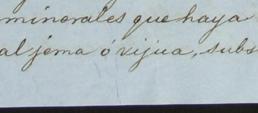 minerales que haya
al jema ó vijua, subs